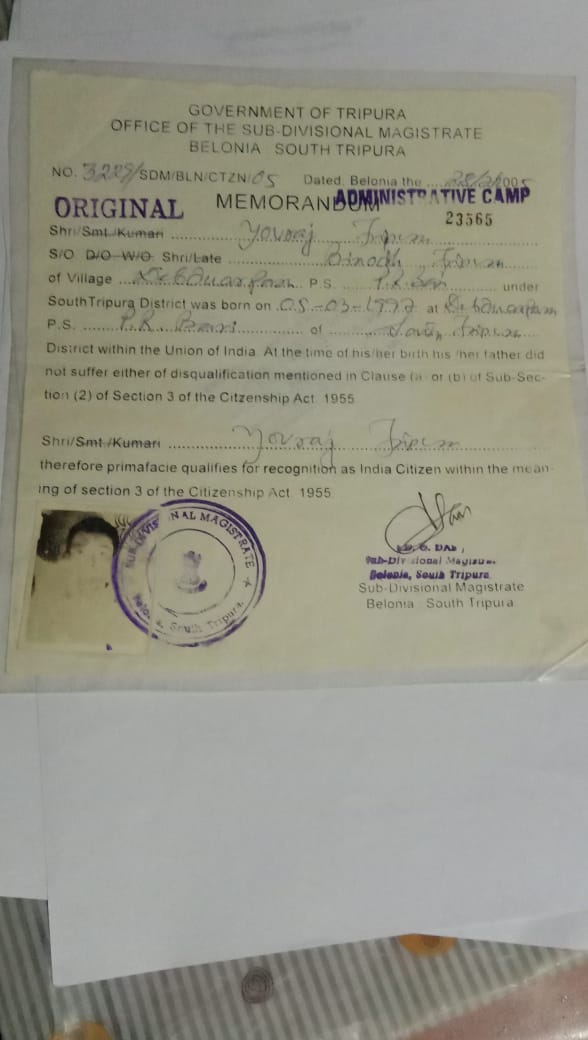 GOVERNMENT OF TRIPURA
OFFICE OF THE SUB-DIVISIONAL MAGISTRATE
BELONIA SOUTH TRIPURA
NO. 3229/SDM/BLN/CTZN/05 Dated. Belonia the
ADMINISTRATIVE CAMP
ORIGINAL MEMORANDUM 23565
Shri/Smt./Kumari Yovraj Tripura
S/O D/O W/O Shri/Late Binodh Tripura
of Village P.S. P.R. Bari under
SouthTripura District was born on 05-03-1992 at
P.S. P.R. Bari of South Tripura
District within the Union of India. At the time of his/her birth his /her father did
not suffer either of disqualification mentioned in Clause (a) or (b) of Sub-Sec-
tion (2) of Section 3 of the Citzenship Act. 1955
Shri/Smt./Kumari Yovraj Tripura
therefore primafacie qualifies for recognition as India Citizen within the mean-
ing of section 3 of the Citizenship Act. 1955.
SUB-DIVISIONAL MAGISTRATE
Belonia, South Tripura.
Sub-Divisional Magistrate
Belonia, South Tripura
Sub-Divisional Magistrate
Belonia South Tripura